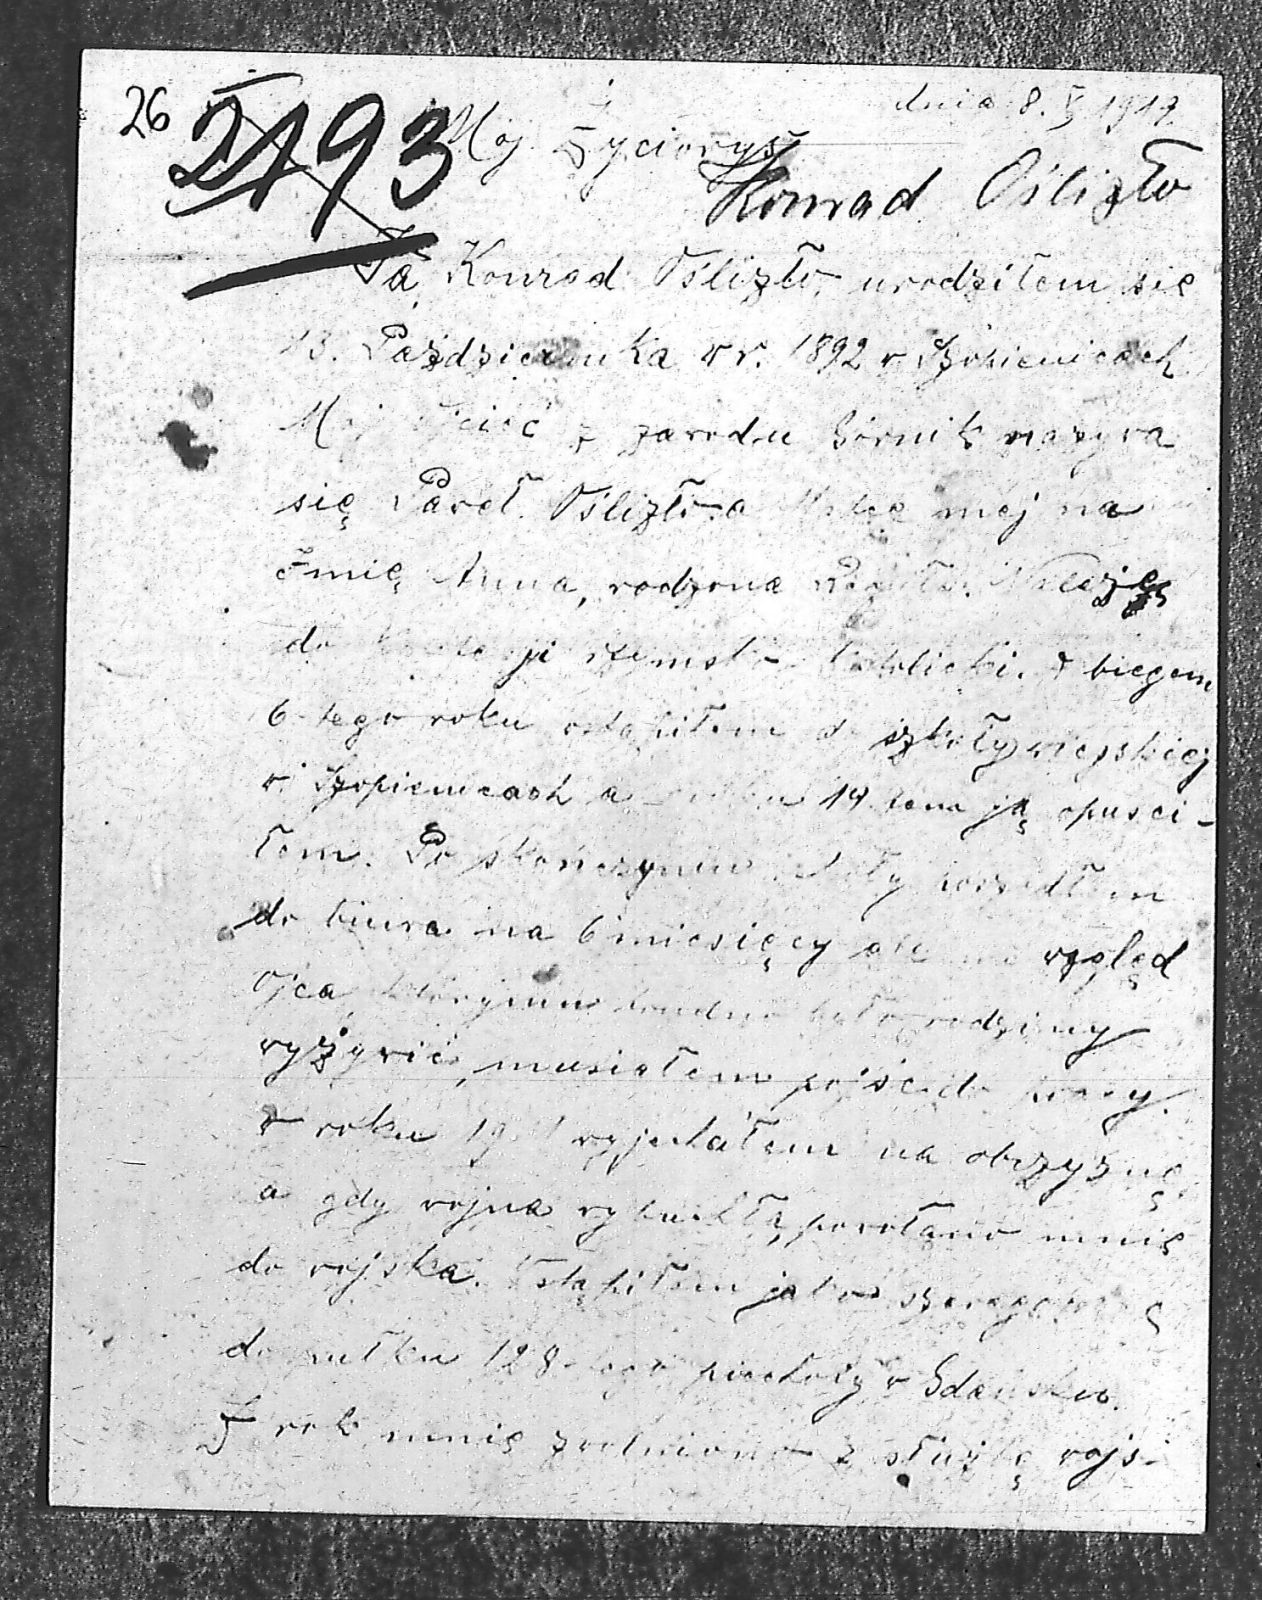 26 2193
dnia 8. V 1917
Mój życiorys
Konrad Oślizło
Ja, Konrad Oślizło, urodziłem się
13. Października w r. 1892 w Szopienicach
Mój Ojciec z zawodu Górnik nazywa
się Paweł Oślizło a mej na
Imię Anna, rodzona Należę
do rzymsko katolicki. Z biegem
6-tego roku wstąpiłem do szkoły wiejskiej
w Szopienicach a w roku 14 tem ją opuści-
łem. Po skończyniu szkoły poszedłem
do biura na 6 miesięcy ale na wzgląd
Ojca, którymu trudno było rodziny
wyżywić, musiałem pójść do pracy.
W roku wyjechałem na obczyznę,
a gdy wojna wybuchła, powołano mnie
do wojska. Wstąpiłem jako szeregowiec
do pułku 128-tego piechoty w Gdańsku.
rok mnie zwolniono z służbę wojs-